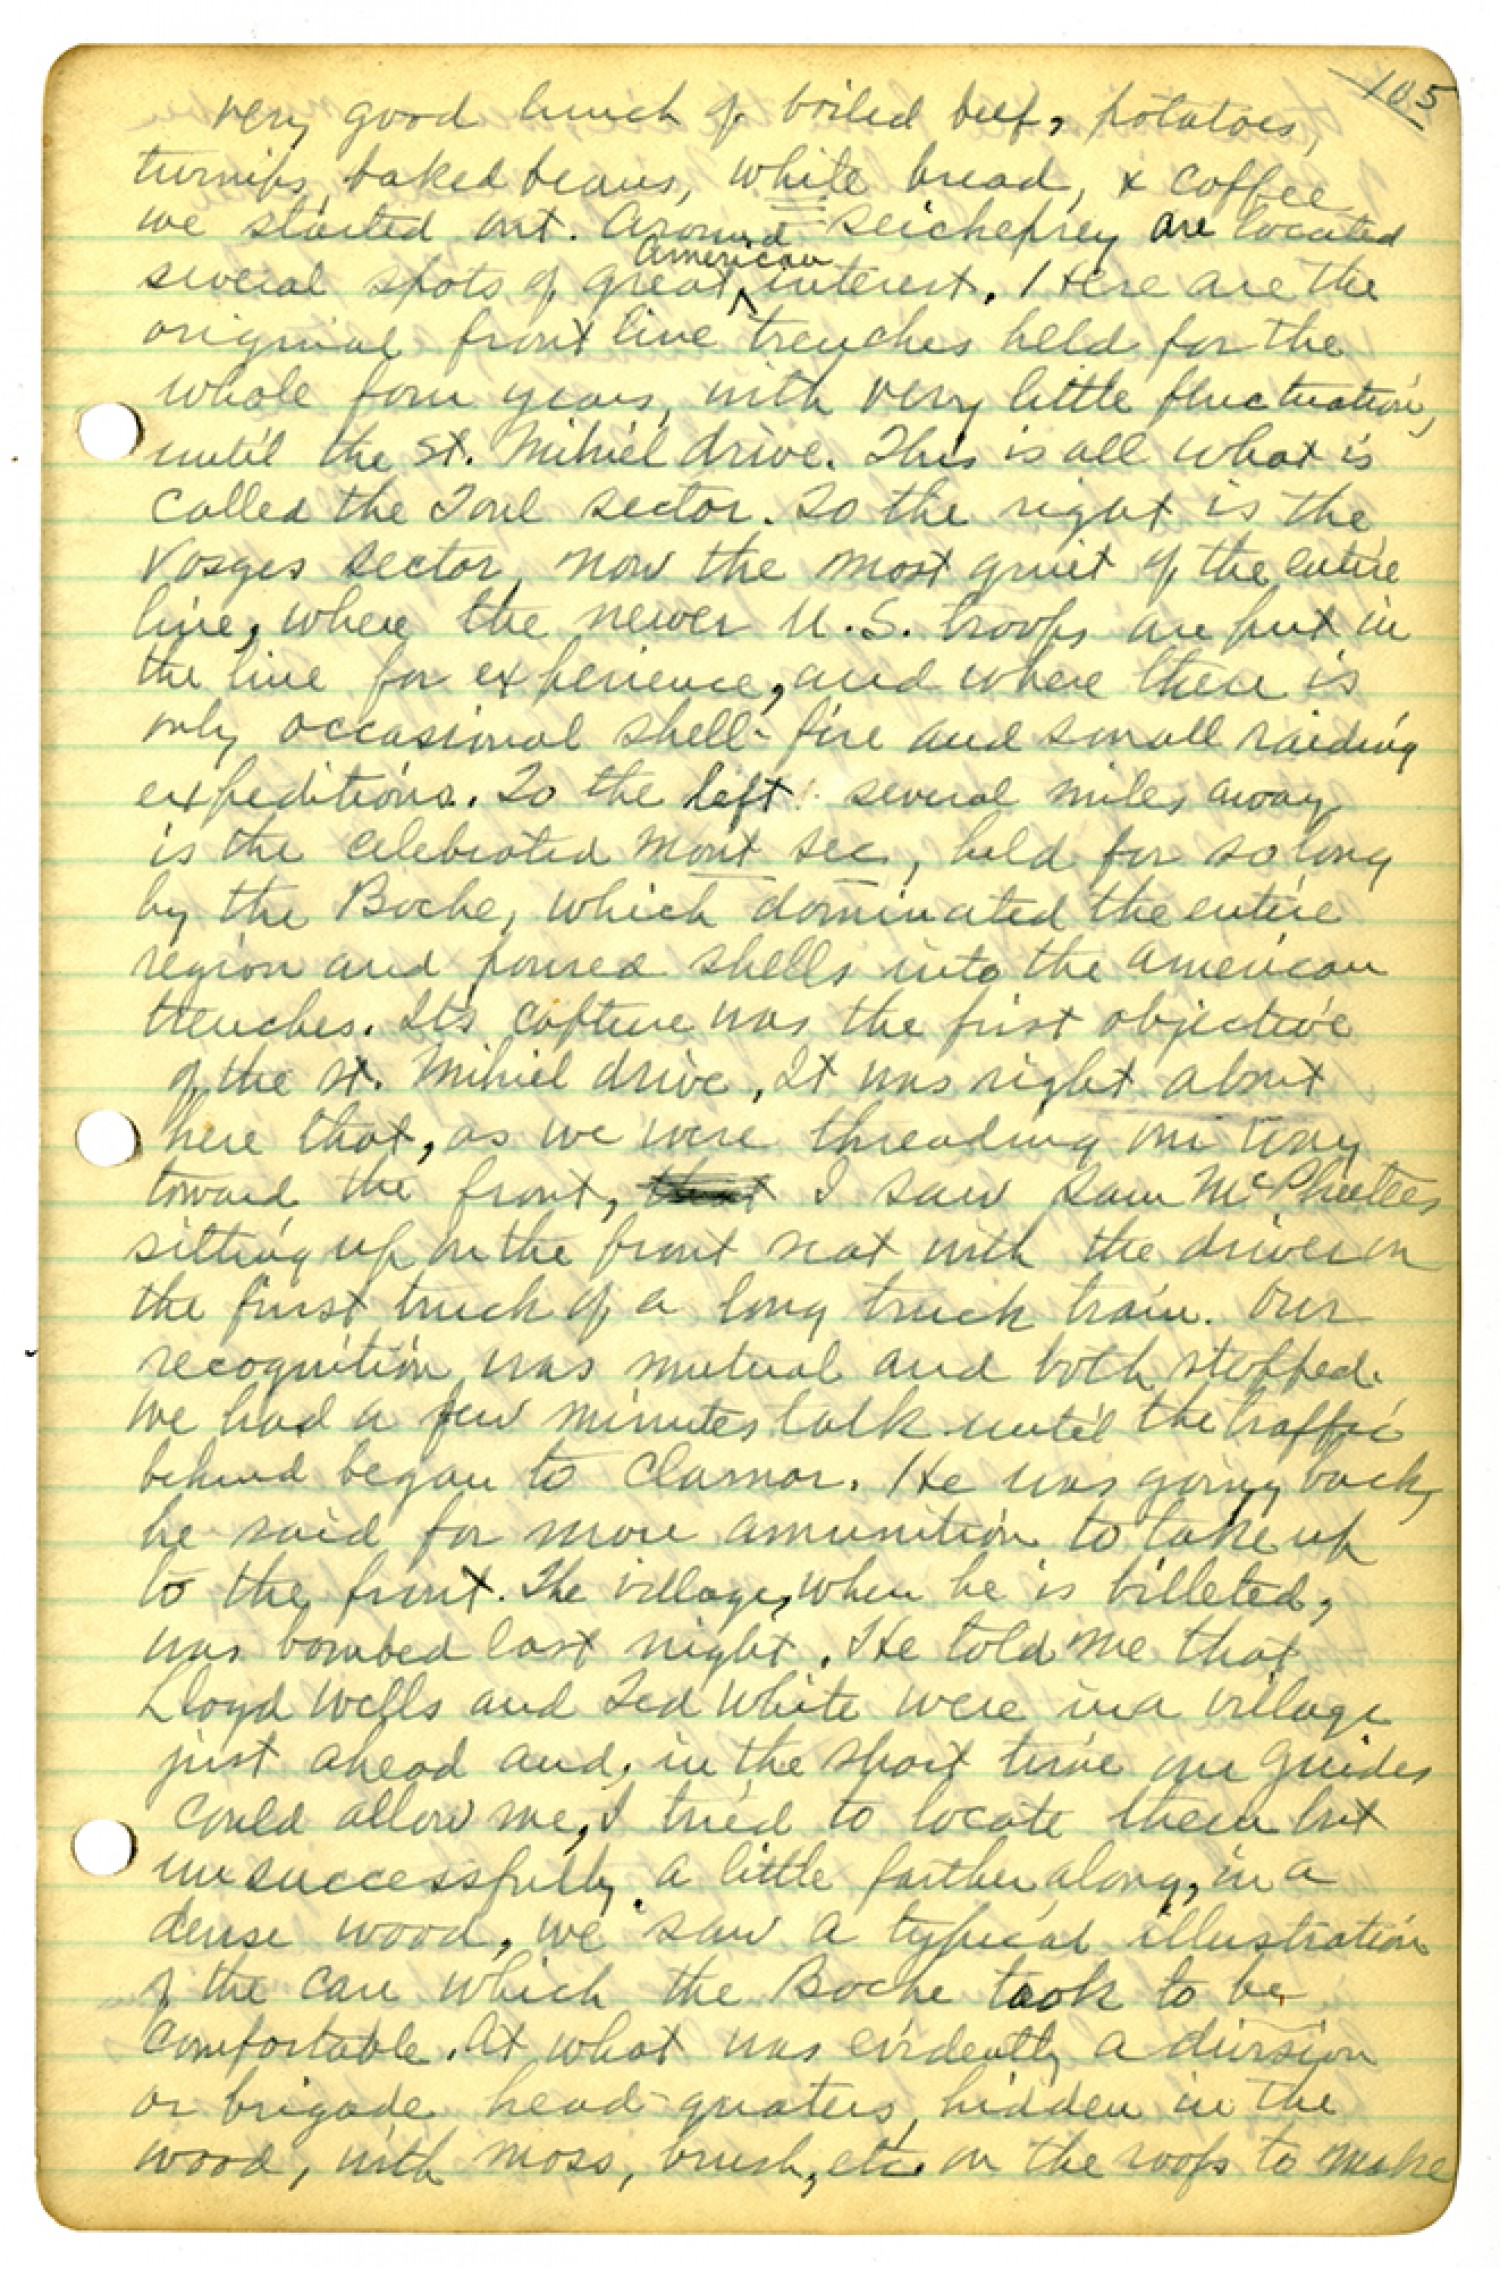 105
very good lunch of boiled beef, potatoes,
turnips, baked beans, white bread, & coffee
we started out. Around Seicheprey are located
American
several spots of great ^ interest. Here are the
original front line trenches held for the
whole four years, with very little fluctuation,
until the St. Mihiel drive. This is all what is
called the Toul sector. To the right is the
Vosges sector, now the most quiet of the entire
line, where the newer U.S. troops are put in
the line for experience, and where there is
only occasional shell-fire and small raiding
expeditions. To the left several miles away
is the celebrated Mont Sec, held for so long
by the Boche, which dominated the entire
region and poured shells into the American
trenches. Its capture was the first objective
of the St. Mihiel drive. It was right about
here that, as we were threading our way
toward the front, that I saw Sam McPheeters
sitting up on the front seat with the driver on
the first truck of a long truck train. Our
recognition was mutual and both stopped.
We had a few minutes talk until the traffic
behind began to clamor. He was going back,
he said for more amunition to take up
to the front. The village, where he is billeted,
was bombed last night. He told me that
Lloyd Wells and Ted White were in a village
just ahead and, in the short time our guides
could allow me, I tried to locate them but
unsuccessfully. A little farther along, in a
dense wood, we saw a typical illustration
of the care which the Boche took to be
comfortable. At what was evidently a division
or brigade head-quaters, hidden in the
wood, with moss, brush, etc. on the roofs to make